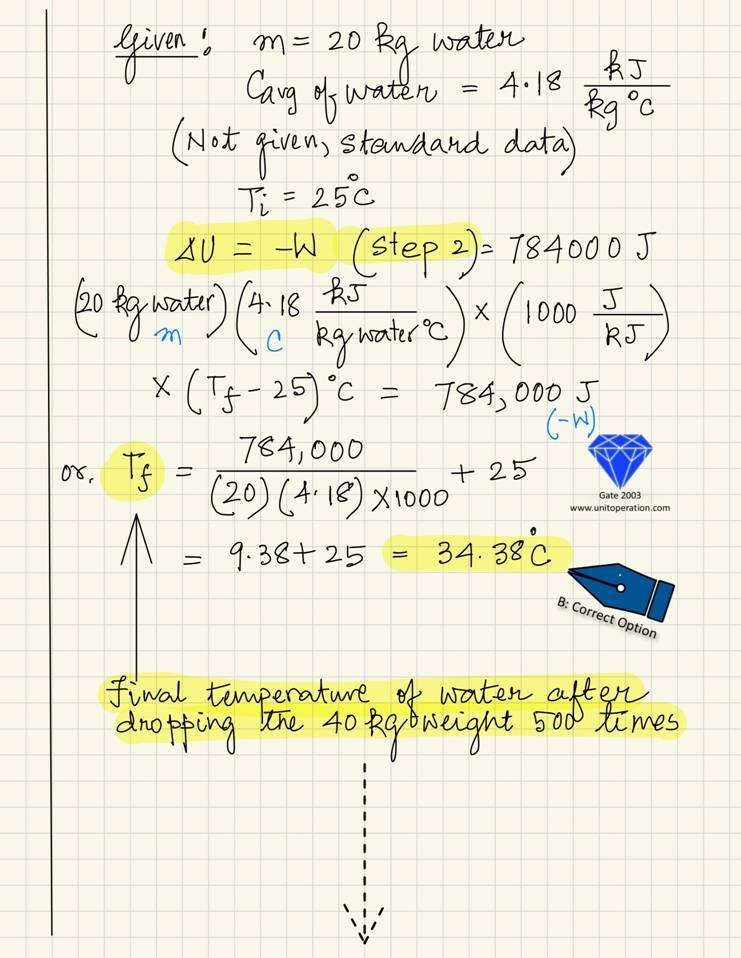 Given: m = 20 kg water
Cavg of water = 4.18 kJ/kg°C
(Not given, standard data)
Ti = 25°C
ΔU = -W (Step 2) = 784000 J
(20 kg water) (4.18 kJ/kg water °C) × (1000 J/kJ)
m C
× (Tf - 25)°C = 784,000 J
(-W)
or, Tf = 784,000/(20)(4.18)×1000 + 25
Gate 2003
www.unitoperation.com
= 9.38 + 25 = 34.38°C
B: Correct Option
Final temperature of water after
dropping the 40 kg weight 500 times